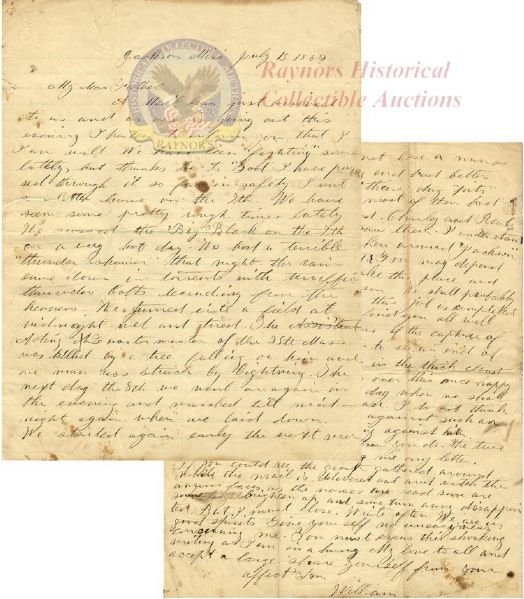 Jackson Miss July 15 1863
My dear Father
A mail has just arrived
to us and as one is going out this
evening I hasten to inform you that I
I am well We have been fighting some
lately, but thanks be to God I have pas
sed through it so far in safety I sent
a letter home on the 4th. We have
seen some pretty rough times lately
We crossed the Big Black on the 7th
on a very hot day We had a terrible
thunder shower that night the rain
came down in torrents with terrific
thunder bolts descending from the
heavens. We turned into a field at
midnight wet and tired. The Assistant
Acting Quartermaster of the 35th Mass
was killed by a tree falling on him and
one man was struck by lightning. The
next day the 8th we went on again in
the evening and marched till mid
night again when we laid down.
We started again early the next mor
RAYNOR'S
HISTORICAL COLLECTIBLE AUCTIONS
Raynors Historical
Collectible Auctions
not lose a man as
and had better
their day "puts"
most of them had
Charley and
saw them I understand
here around Jackson
You may depend
take the place and
We shall probably
this job is completed
find you all well
of the capture of
to see an end of
in the thick chest
over this once happy
day when we shall
I do not think
against such an
against
you do the true
me any letter.
If you could see the group gathered around
when the mail is delivered and watch the
anxious faces as the names are read some are
brighten up and some turn away disappoin
ted. But I must close. Write often We are in
good spirits Give yourself no uneasiness
concerning me. You must excuse this shocking
writing as I am in a hurry My love to all and
accept a large share yourself from your
affect Son
William